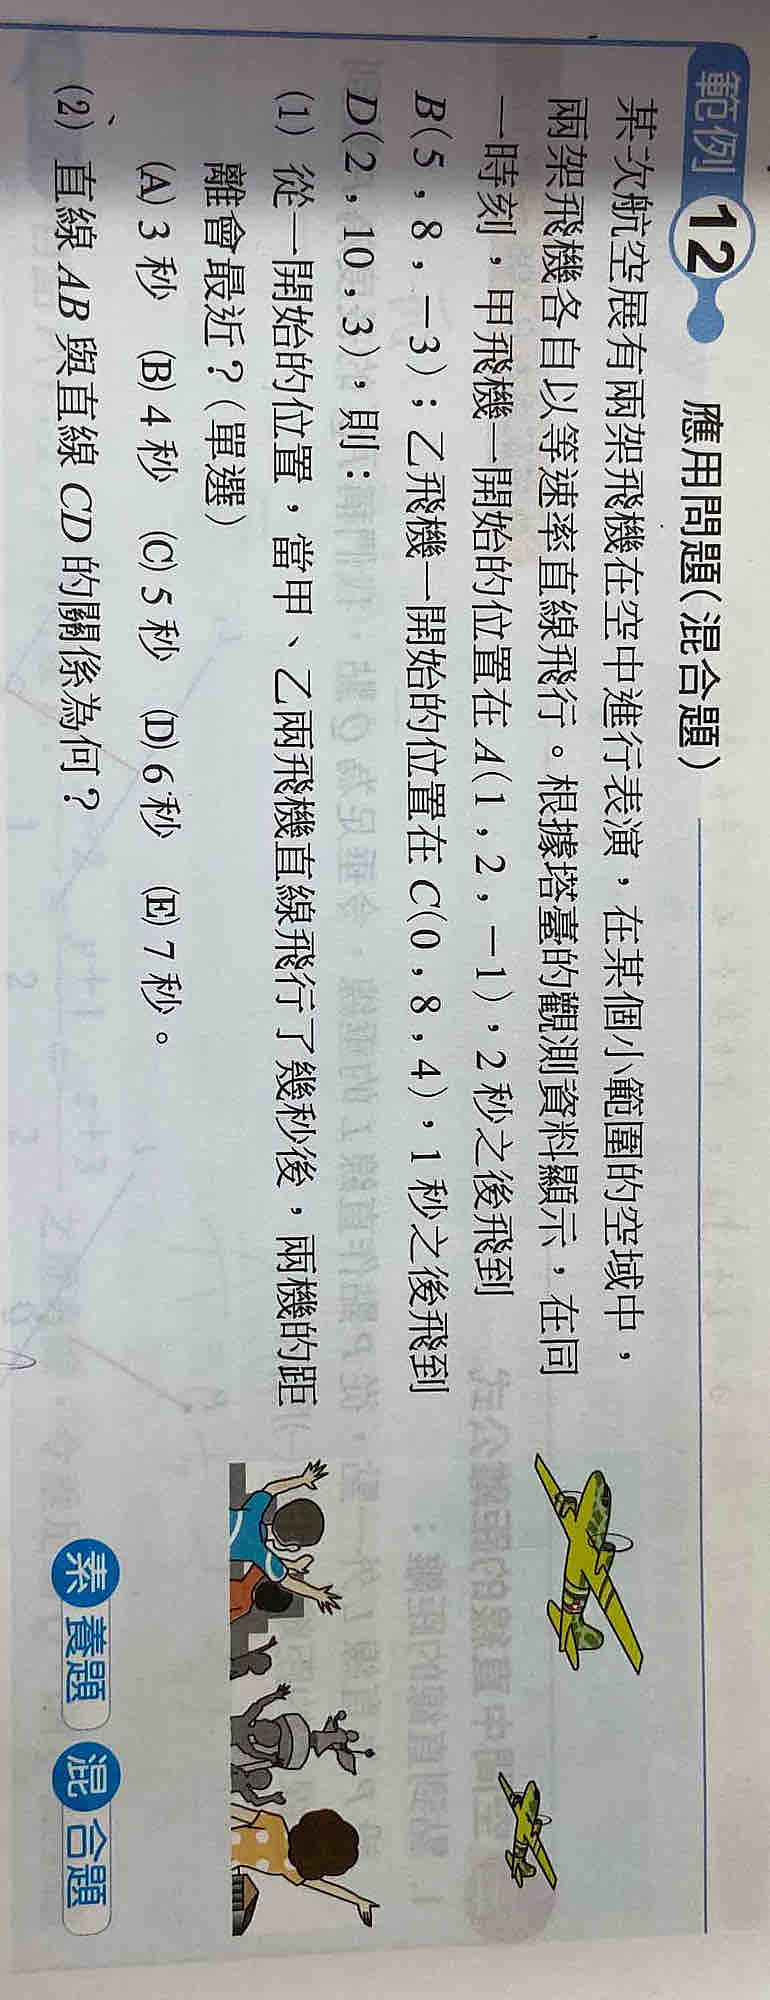 範例 12 應用問題(混合題)
某次航空展有兩架飛機在空中進行表演，在某個小範圍的空域中，
兩架飛機各自以等速率直線飛行。根據塔臺的觀測資料顯示，在同
一時刻，甲飛機一開始的位置在 A(1，2，−1)，2 秒之後飛到
B(5，8，−3)；乙飛機一開始的位置在 C(0，8，4)，1 秒之後飛到
D(2，10，3)，則：
(1) 從一開始的位置，當甲、乙兩飛機直線飛行了幾秒後，兩機的距
離會最近？(單選)
(A) 3 秒 (B) 4 秒 (C) 5 秒 (D) 6 秒 (E) 7 秒。
(2) 直線 AB 與直線 CD 的關係為何？
素養題 混合題